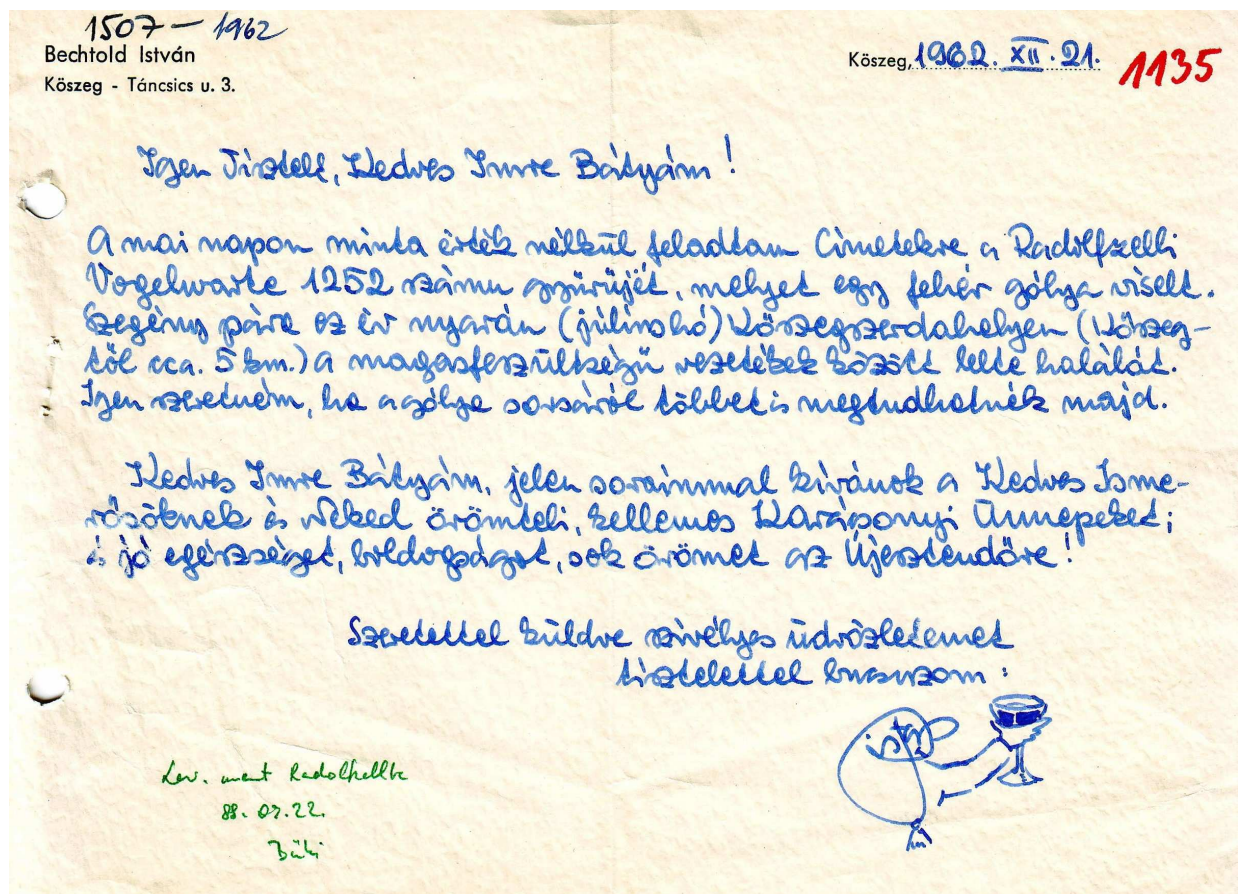 1507 - 1962
Bechtold István
Kőszeg - Táncsics u. 3.
Kőszeg, 1962. XII. 21.
1135
Igen Tisztelt, Kedves Imre Bátyám!
A mai napon minta érték nélkül feladtam Cimetekre a Radolfzelli
Vogelwarte 1252 számu gyürüjét, melyet egy fehér gólya viselt.
Szegény pára ez év nyarán (július hó) Kőszegszerdahelyen (Kőszeg-
től cca. 5 km.) a magasfeszültségü vezetékek között lelte halálát.
Igen szeretném, ha a gólya sorsáról többet is megtudhatnék majd.
Kedves Imre Bátyám, jelen soraimmal kívánok a Kedves Isme-
rősöknek és Neked örömteli, kellemes Karácsonyi Ünnepeket;
és jó egészséget, boldogságot, sok örömet az Újesztendőre!
Szeretettel küldve szívélyes üdvözletemet
tisztelettel bucsuzom:
István
Lev. ment
88. 07. 22.
Büki